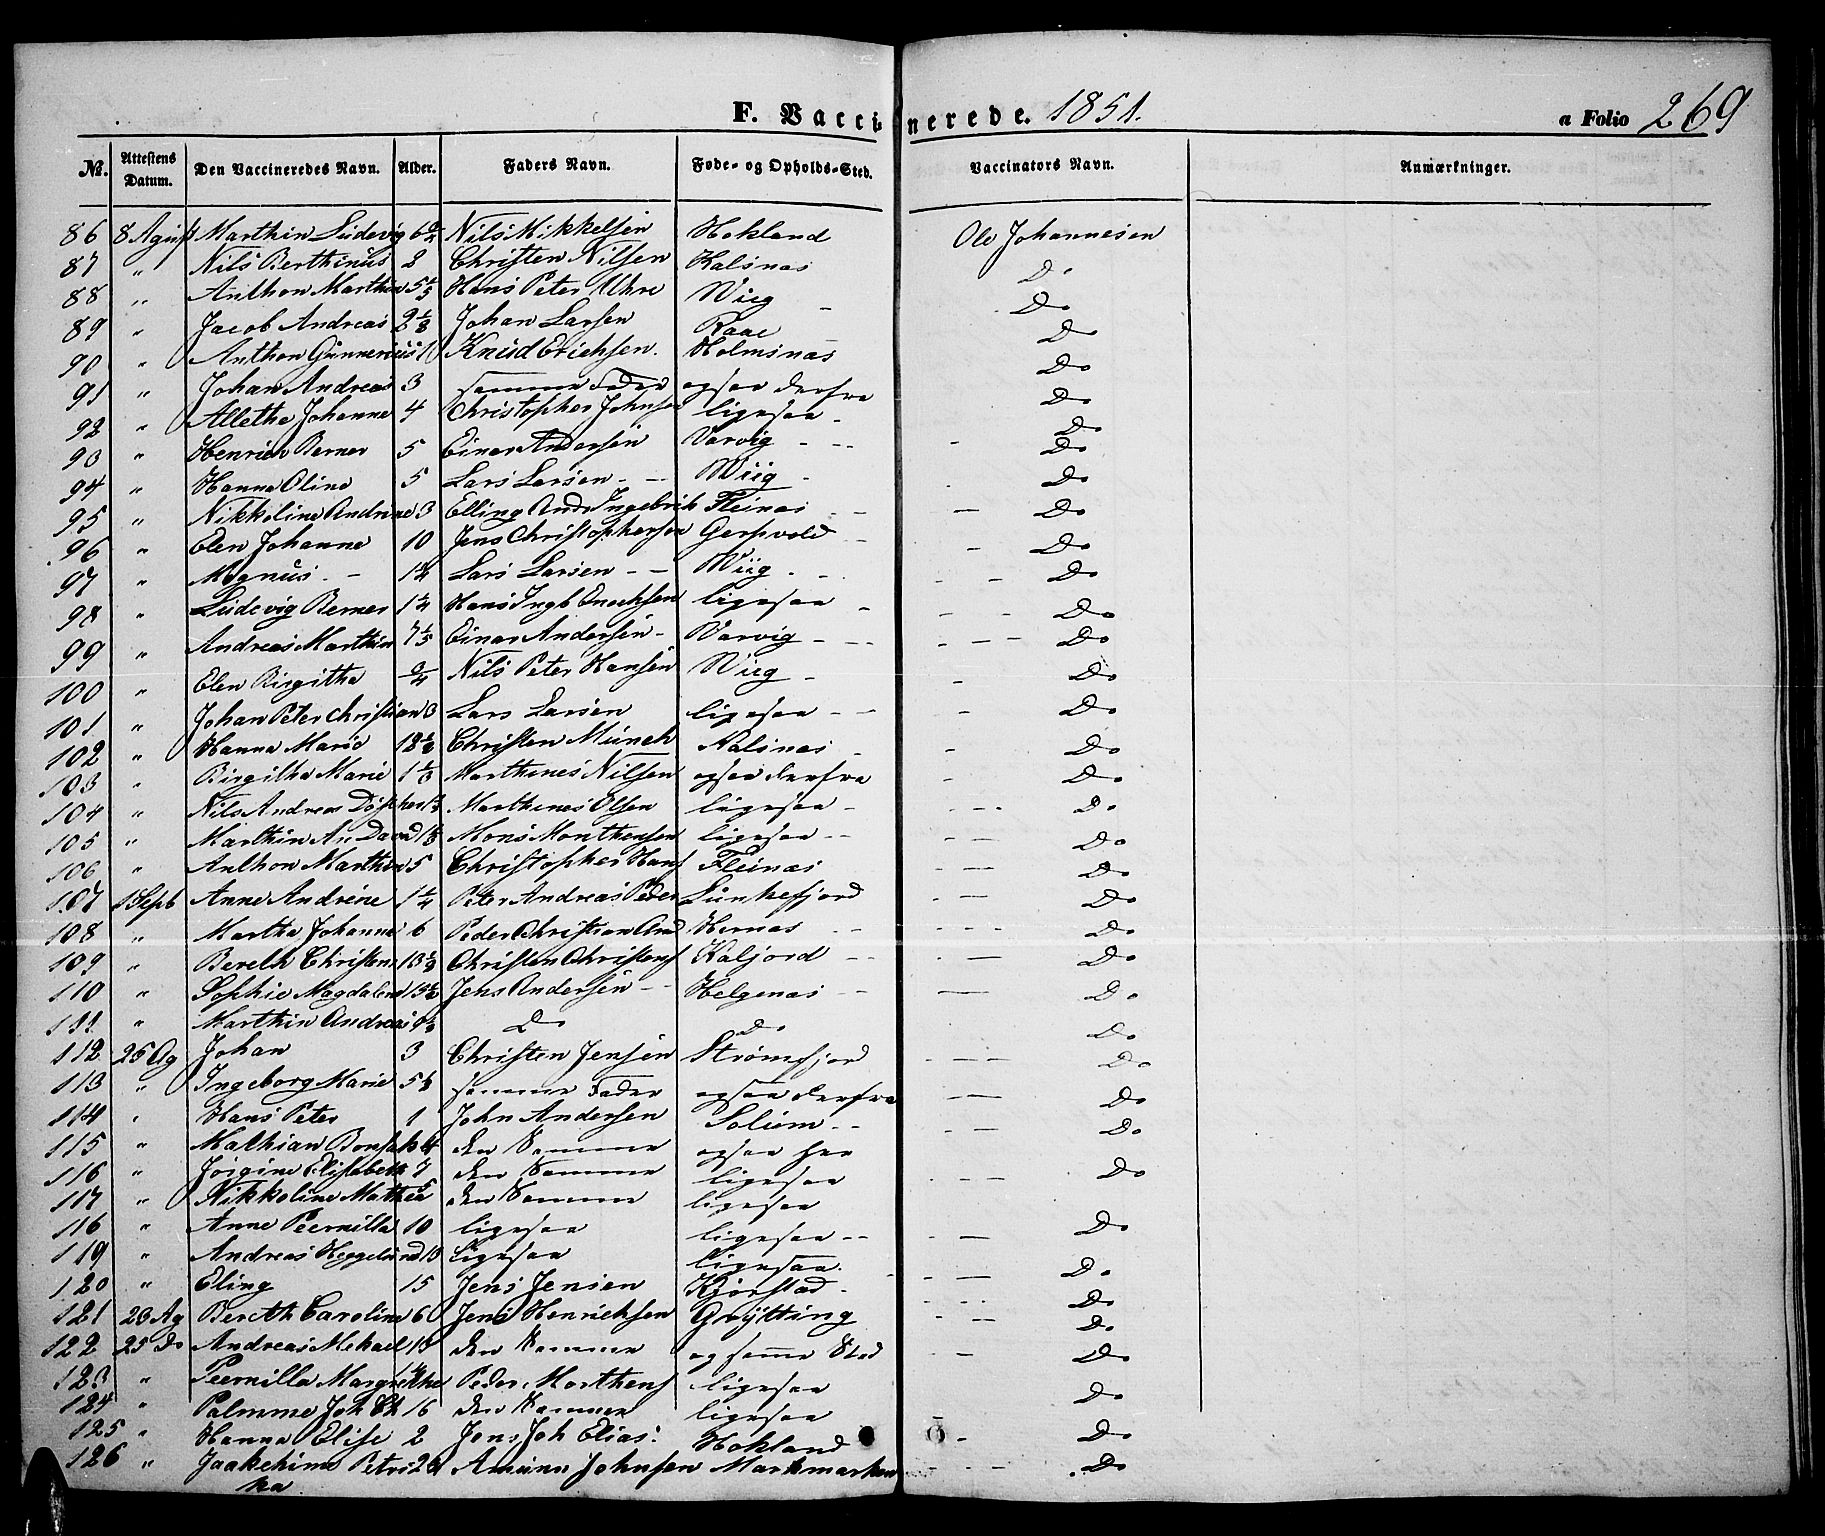 F. Vaccinerede. 1851. a Folio 269
No. Attestens Datum. Den Vaccineredes Navn. Alder. Faders Navn. Føde- og Opholds-Sted. Vaccinators Navn. Anmærkninger.
86 8 Agust Marthin Ludevig 6 3/4 Nils Mikkelsen Hokland Ole Johannesen
87 " Nils Berthinus 2 Christen Nilsen Kalsnas Do
88 " Anthon Marthin 5 1/3 Hans Peter Uhre Wieg - Do
89 " Jacob Andreas 2 1/8 Johan Larsen Raae Do
90 " Anthon Gunnerius 11 Knud Erichsen. Holmsnas Do
91 " Johan Andreas 3 samme Fader ogsaa derfra Do
92 " Allethe Johanne 4 Christopher Johnsen ligesaa - Do
93 " Henrich Berner 5 Einar Andersen Varvig - - Do
94 " Hanna Oline 5 Lars Larsen - - Wiig - Do
95 " Nikkoline Andrine 3 Elling Andr Ingebrik Fleinas - - Do
96 " Elen Johanne 10 Jens Christophersen Gerpvold - - Do
97 " Magnus - - 1 1/4 Lars Larsen - - Wiig - - Do
98 " Ludevig Berner 1 1/4 Hans Ingb Enochsen ligesaa - Do
99 " Andreas Marthin 7 1/5 Einar Andersen - Varvig - - Do
100 " Elen Birgitha 3/4 Nils Peter Hansen Wieg - Do
101 " Johan Peter Christian 3 Lars Larsen ligesaa - - Do
102 " Hanna Marie 18 1/2 Christen Münch Kalsnas - Do
103 " Birgitha Marie 1 1/3 Marthenes Nilsen ogsaa derfra - Do
104 " Nils Andreas Marthenes Olsen ligesaa - Do
105 " Marthin An David Mons Monthensen ligesaa - - Do
106 " Anthon Marthin 5 Christopher Hans Fleinas - Do
107 1 Sepb Anne Andrine 1 1/4 Peter Andreas Peder Lunkefjord - Do
108 " Martha Johanne 6 Peder Christian And Hernas - - Do
109 " Bereth Christen 13 Christen Christens Kaljord - - Do
110 " Sophie Magdalene 15 1/2 Jens Andersen - - Helgenas - - Do
111 " Marthin Andreas Do Do Do
112 25 Ag Johan 3 Christen Jensen Strømsfjord - Do
113 " Ingeborg Marie 5 1/2 samme Fader ogsaa derfra - Do
114 " Hans Peter 1 John Andersen Solium - - Do
115 " Mathian 4 den Samme ogsaa her
116 " Jørgine Elisabeth 7 den Samme ligesaa Do
117 " Nikkoline Mathea 5 den Samme ligesaa
116 " Anne Peernilla 10 ligesaa ligesaa - - Do
119 " Andreas Heggelund 13 Ligesaa ligesaa. Do
120 " Eling 15 Jens Jensen Kjørstad - Do
121 23 Ag Bereth Caroline 6 Jens Henrichsen Grytting Do
122 25 Do Andreas Mekael 13 den Samme og samme Sted - Do
123 " Peernilla Margrethe Peder Morthens ligesaa Do
124 " Palmme Joh Ch 16 den Samme ligesaa
125 " Hanna Elise 2 Jens Joh Elias: Hokland - Do
126 " Jaakehime Petri 26 Amund Johnsen Markmarken - - Do
ka